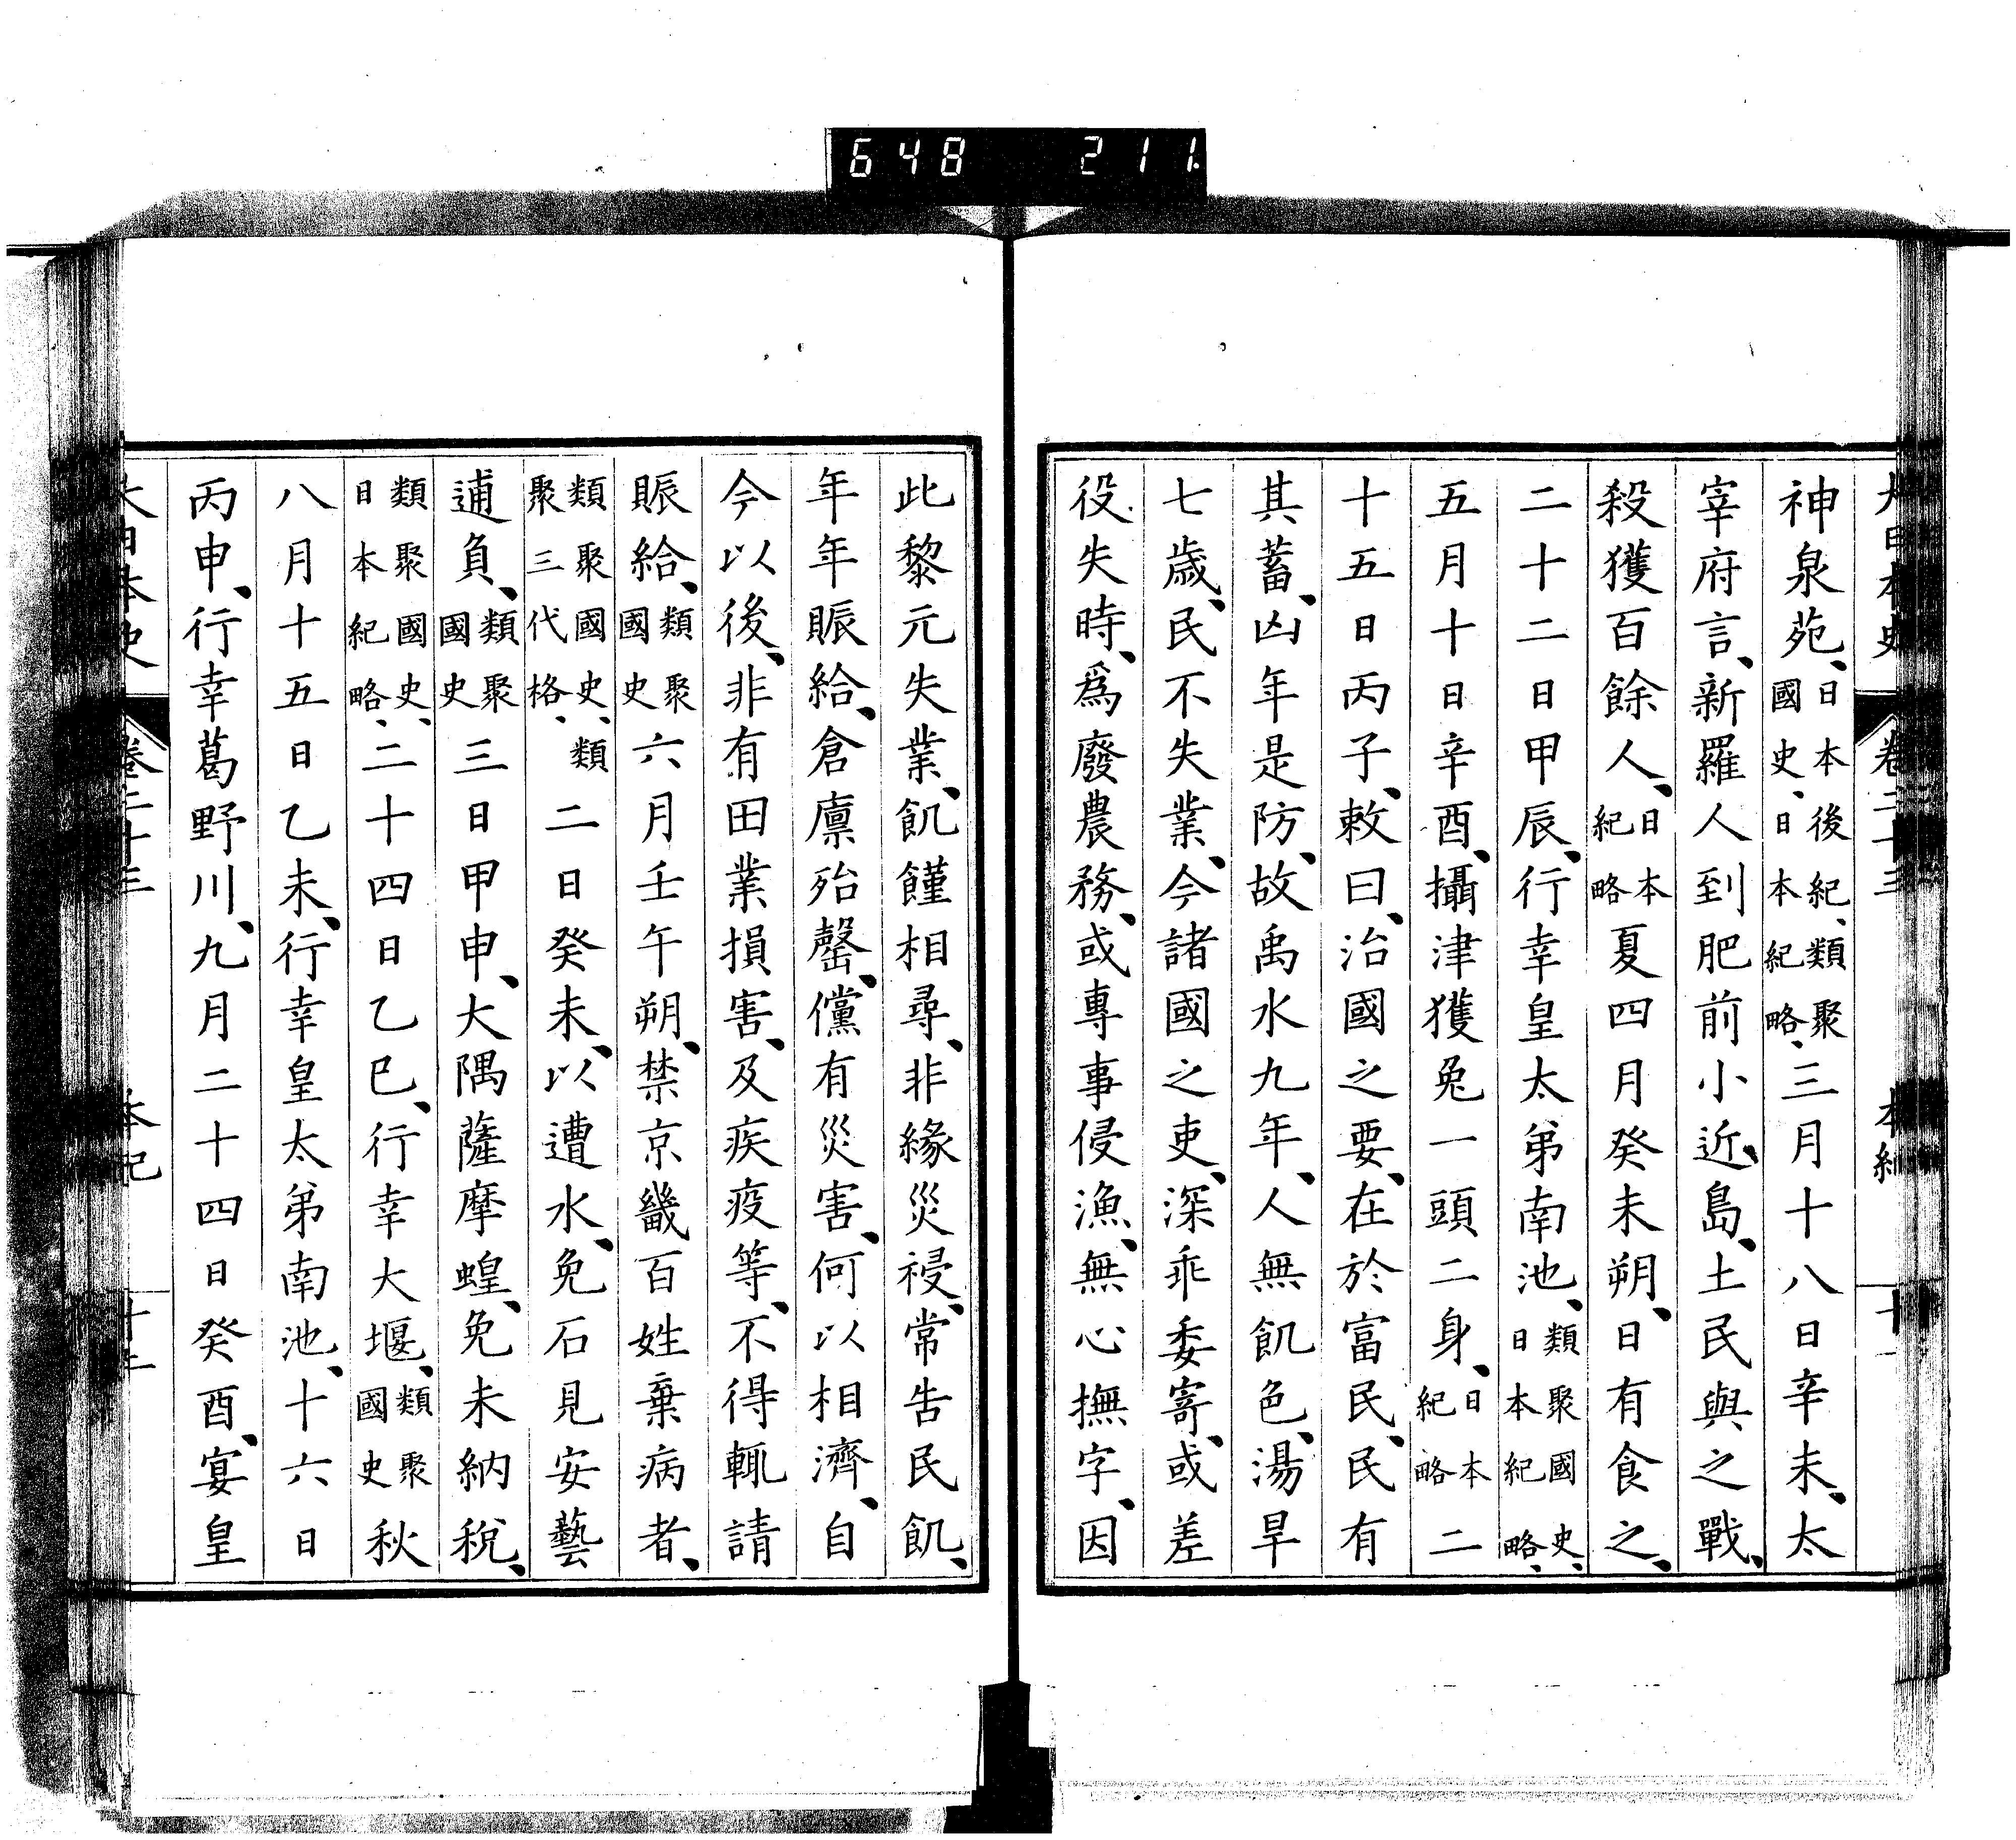 648 211
大日本史 卷二十三 本紀 十一
神泉苑、日本後紀、類聚國史、日本紀略、三月十八日辛未、太
宰府言、新羅人到肥前小近島、土民與之戰、
殺獲百餘人、日本紀略夏四月癸未朔、日有食之、
二十二日甲辰、行幸皇太弟南池、類聚國史、日本紀略、
五月十日辛酉、攝津獲兔一頭二身、日本紀略二
十五日丙子、敕曰、治國之要、在於富民、民有
其蓄、凶年是防、故禹水九年、人無飢色、湯旱
七歲、民不失業、今諸國之吏、深乖委寄、或差
役失時、爲廢農務、或專事侵漁、無心撫字、因
此黎元失業、飢饉相尋、非緣災祲、常告民飢、
年年賑給、倉廩殆罄、儻有災害、何以相濟、自
今以後、非有田業損害、及疾疫等、不得輒請
賑給、類聚國史六月壬午朔、禁京畿百姓棄病者、
類聚國史、類聚三代格、二日癸未、以遭水、免石見安藝
逋負、類聚國史三日甲申、大隅薩摩蝗、免未納稅、
類聚國史、日本紀略、二十四日乙巳、行幸大堰、類聚國史秋
八月十五日乙未、行幸皇太弟南池、十六日
丙申、行幸葛野川、九月二十四日癸酉、宴皇
大日本史 卷二十三 本紀 十一